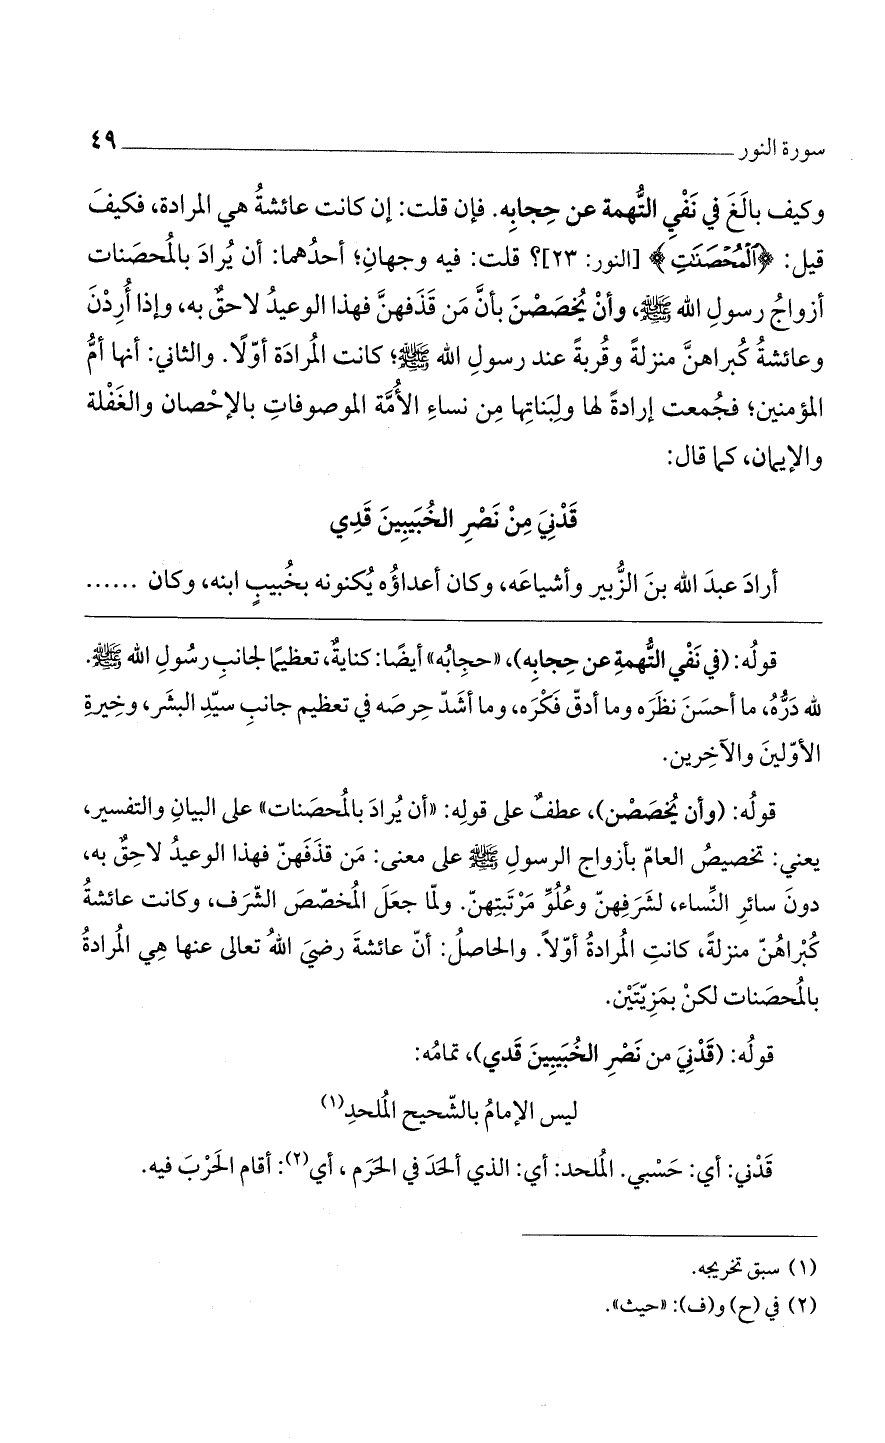 سورة النور ٤٩
وكيف بالَغَ في نَفْيِ التُّهمة عن حِجابِه. فإن قلت: إن كانت عائشةُ هي المرادة، فكيفَ
قيل: ﴿ٱلْمُحْصَنَٰتِ﴾ [النور: ٢٣]؟ قلت: فيه وجهانِ؛ أحدُهما: أن يُرادَ بالمُحصَنات
أزواجُ رسولِ الله ﷺ، وأنْ يُخصَصْنَ بأنَّ مَن قَذَفهنَّ فهذا الوعيدُ لاحقٌ به، وإذا أُرِدْنَ
وعائشةُ كُبراهنَّ منزلةً وقُربةً عند رسولِ الله ﷺ؛ كانت المُرادَة أوّلًا. والثاني: أنها أمُّ
المؤمنين؛ فجُمعت إرادةً لها ولِبَناتِها مِن نساءِ الأُمَّة الموصوفاتِ بالإحْصان والغَفْلة
والإيمان، كما قال:
قَدْنِيَ مِنْ نَصْرِ الخُبَيبِينَ قَدِي
أرادَ عبدَ الله بنَ الزُّبير وأشياعَه، وكان أعداؤُه يُكنونه بخُبيبٍ ابنه، وكان ......
قولُه: (في نَفْي التُّهمةِ عن حِجابِه)، «حجابُه» أيضًا: كنايةٌ، تعظيمًا لجانبِ رسُولِ الله ﷺ.
لله دَرُّهُ، ما أحسَنَ نظرَه وما أدقّ فَكْرَه، وما أشدّ حِرصَه في تعظيم جانبِ سيِّدِ البشَر، وخِيرةِ
الأوّلينَ والآخِرين.
قولُه: (وأن يُخصَصْن)، عطفٌ على قولِه: «أن يُرادَ بالمُحصَنات» على البيانِ والتفسير،
يعني: تخصيصُ العامّ بأزواج الرسولِ ﷺ على معنى: مَن قذَفَهنّ فهذا الوعيدُ لاحِقٌ به،
دونَ سائرِ النِّساء، لشَرَفِهنّ وعُلُوِّ مَرْتَبتِهنّ. ولمّا جعَلَ المُخصّصَ الشّرَف، وكانت عائشةُ
كُبْراهُنّ منزلةً، كانتِ المُرادةُ أوّلاً. والحاصلُ: أنّ عائشةَ رضيَ اللهُ تعالى عنها هِي المُرادةُ
بالمُحصَنات لكنْ بمَزِيّتَيْن.
قولُه: (قَدْنيَ من نَصْرِ الخُبَيبِينَ قَدي)، تمامُه:
ليس الإمامُ بالشّحيح المُلحدِ(١)
قَدْني: أي: حَسْبي. المُلحد: أي: الذي ألحَدَ في الحَرَم ، أي(٢): أقام الحَرْبَ فيه.
(١) سبق تخريجه.
(٢) في (ح) و(ف): «حيث».